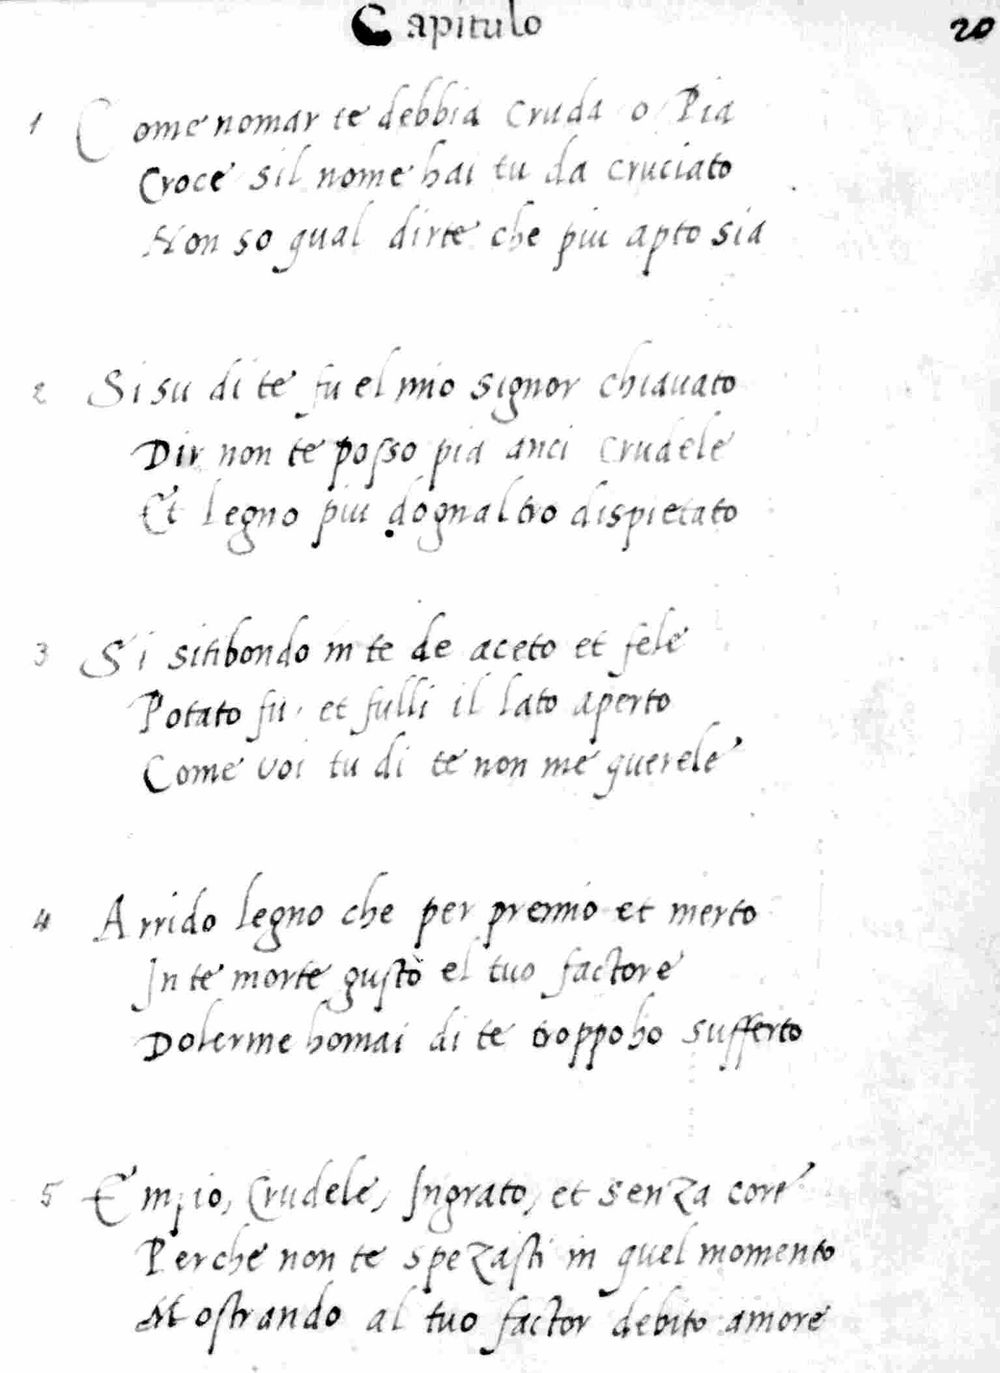 Capitulo
20
1 Come nomar te debbia cruda o Pia
Croce sil nome hai tu da cruciato
Non so qual dirte che piu apto sia
2 Si su di te fu el mio signor chiauato
Dir non te posso pia anci crudele
Et legno piu dognaltro dispietato
3 Si sitibondo in te de aceto et fele
Potato fu, et fulli il lato aperto
Come voi tu di te non me querele
4 Arrido legno che per premio et merto
In te morte gustò el tuo factore
Dolerme homai di te troppo ho sufferto
5 Empio, Crudele, Ingrato, et senza core
Perche non te spezasti in quel momento
Mostrando al tuo factor debito amore